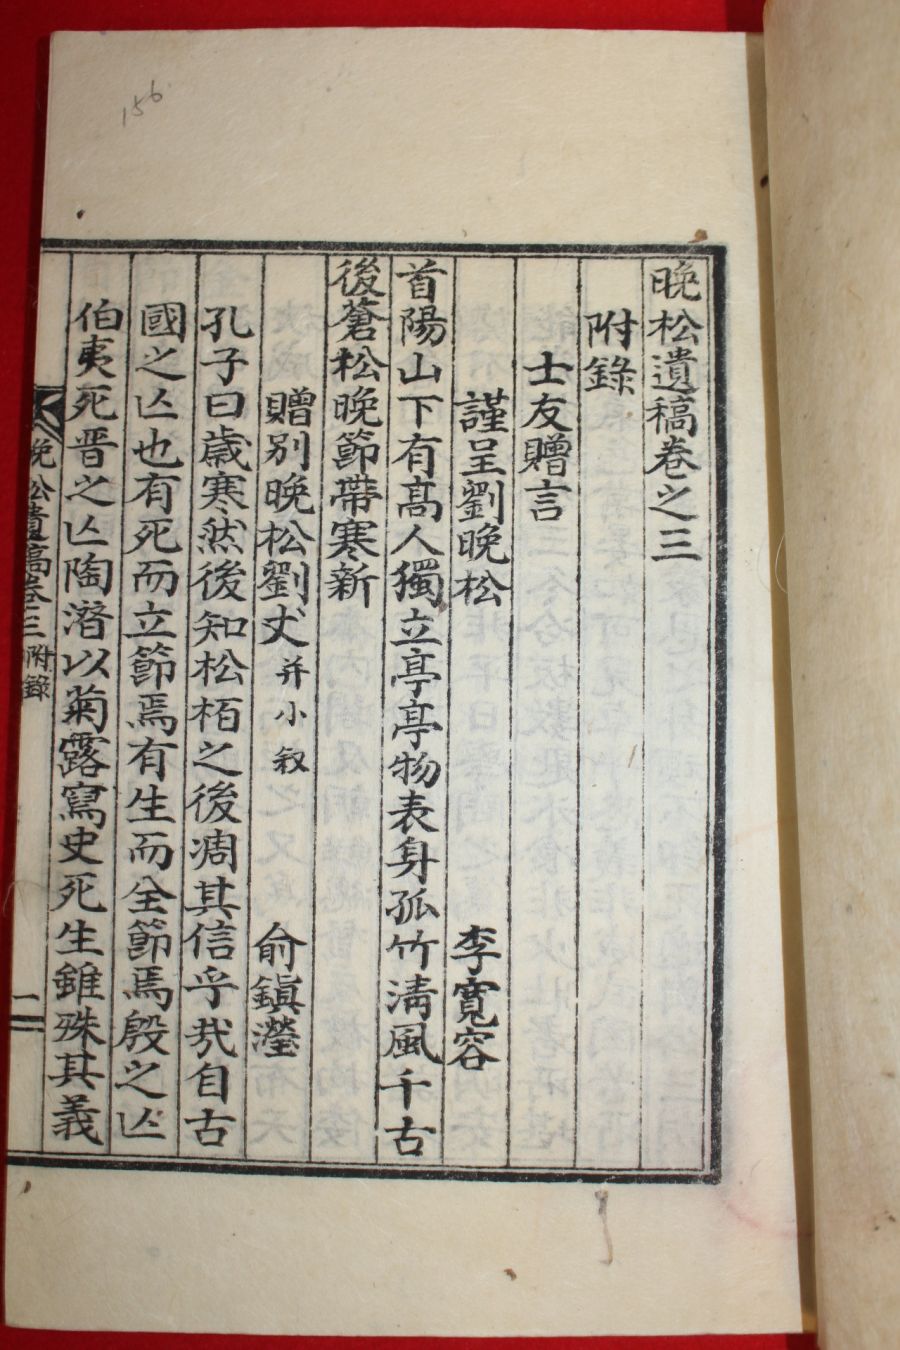 156
晚松遺稿卷之三
附錄
士友贈言
謹呈劉晚松 李寬容
首陽山下有高人獨立亭亭物表身孤竹淸風千古
後蒼松晚節帶寒新
贈別晚松劉丈 并小叙 俞鎭瀅
孔子曰歲寒然後知松栢之後凋其信乎㢤自古
國之亾也有死而立節焉有生而全節焉殷之亾
伯夷死晋之亾陶潛以菊露寫史死生雖殊其義
晚松遺稿卷三 附錄 一